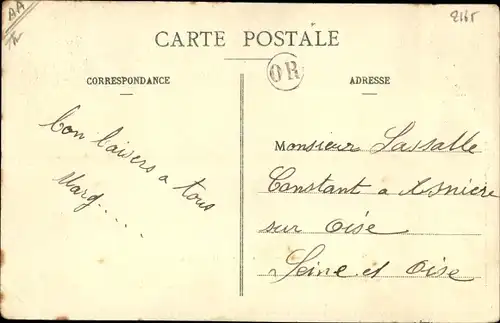 AA
2165
CARTE POSTALE
OR
CORRESPONDANCE
ADRESSE
bon baisers a tous
Marg.....
Monsieur Lassalle
Constant a Asniere
sur Oise
Seine et Oise